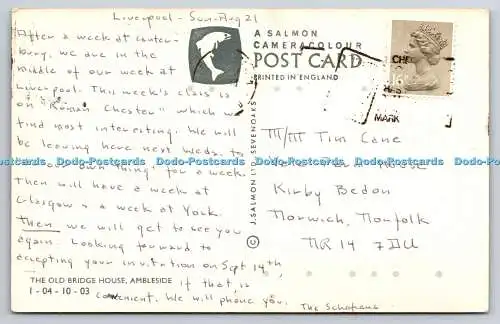 Liverpool - Sun Aug 21
After a week at Canter-
bury, we are in the
middle of our week at
Liverpool. This week's class is
on "Roman Chester" which we
find most interesting. We will
be leaving here next Weds. to
own thing" for a week.
Then will have a week at
Glasgow & a week at York.
Then we will get to see you
again. Looking forward to
accepting your invitation on Sept 14th
if that is
convenient. We will phone you.
The
THE OLD BRIDGE HOUSE, AMBLESIDE
1-04-10-03
A SALMON
CAMERACOLOUR
POST CARD
PRINTED IN ENGLAND
© J. SALMON LTD. SEVENOAKS
16
MARK
M/M Tim Cane
Kirby Bedon
Norwich, Norfolk
NR 14 7DU
Dodo-Postcards Dodo-Postcards Dodo-Postcards Dodo-Postcards Dodo-Postcards Dodo-Postcards